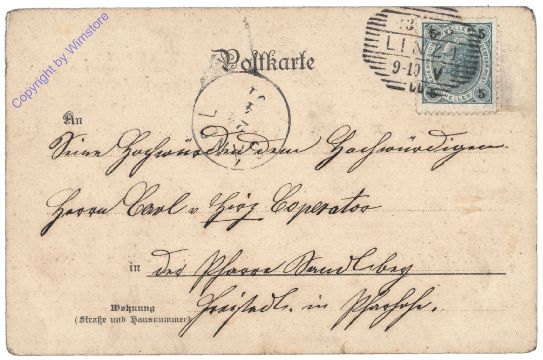 Copyright by Wimstore
Postkarte
LINZ
9-10 V
5 5
5 5
An
Seine Hochwürden dem Hochwürdigen
Herrn Carl v Hirz Coperator
in der Pfarre
Wohnung
(Straße und Hausnummer)
in Pfarrhofe.